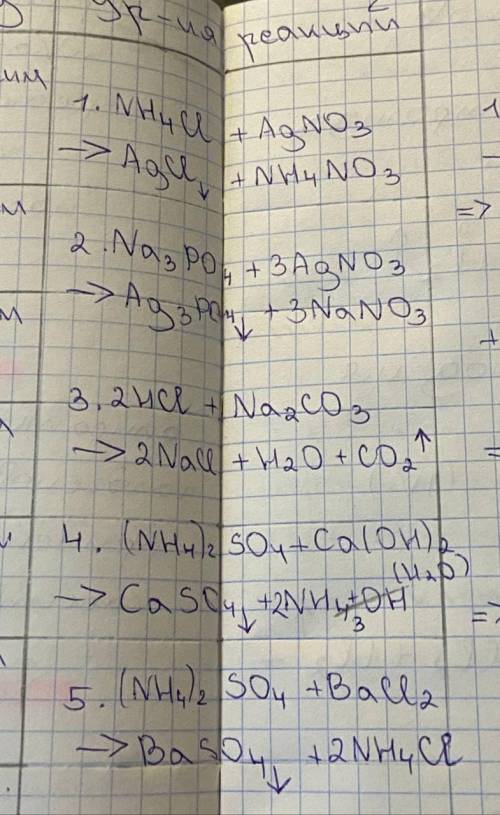 Ур-ия реакций
1. NH₄Cl + AgNO₃
→ AgCl↓ + NH₄NO₃
2. Na₃PO₄ + 3AgNO₃
→ Ag₃PO₄↓ + 3NaNO₃
3. 2HCl + Na₂CO₃
→ 2NaCl + H₂O + CO₂↑
4. (NH₄)₂SO₄ + Ca(OH)₂
(H₂O)
→ CaSO₄↓ + 2NH₃
5. (NH₄)₂SO₄ + BaCl₂
→ BaSO₄↓ + 2NH₄Cl